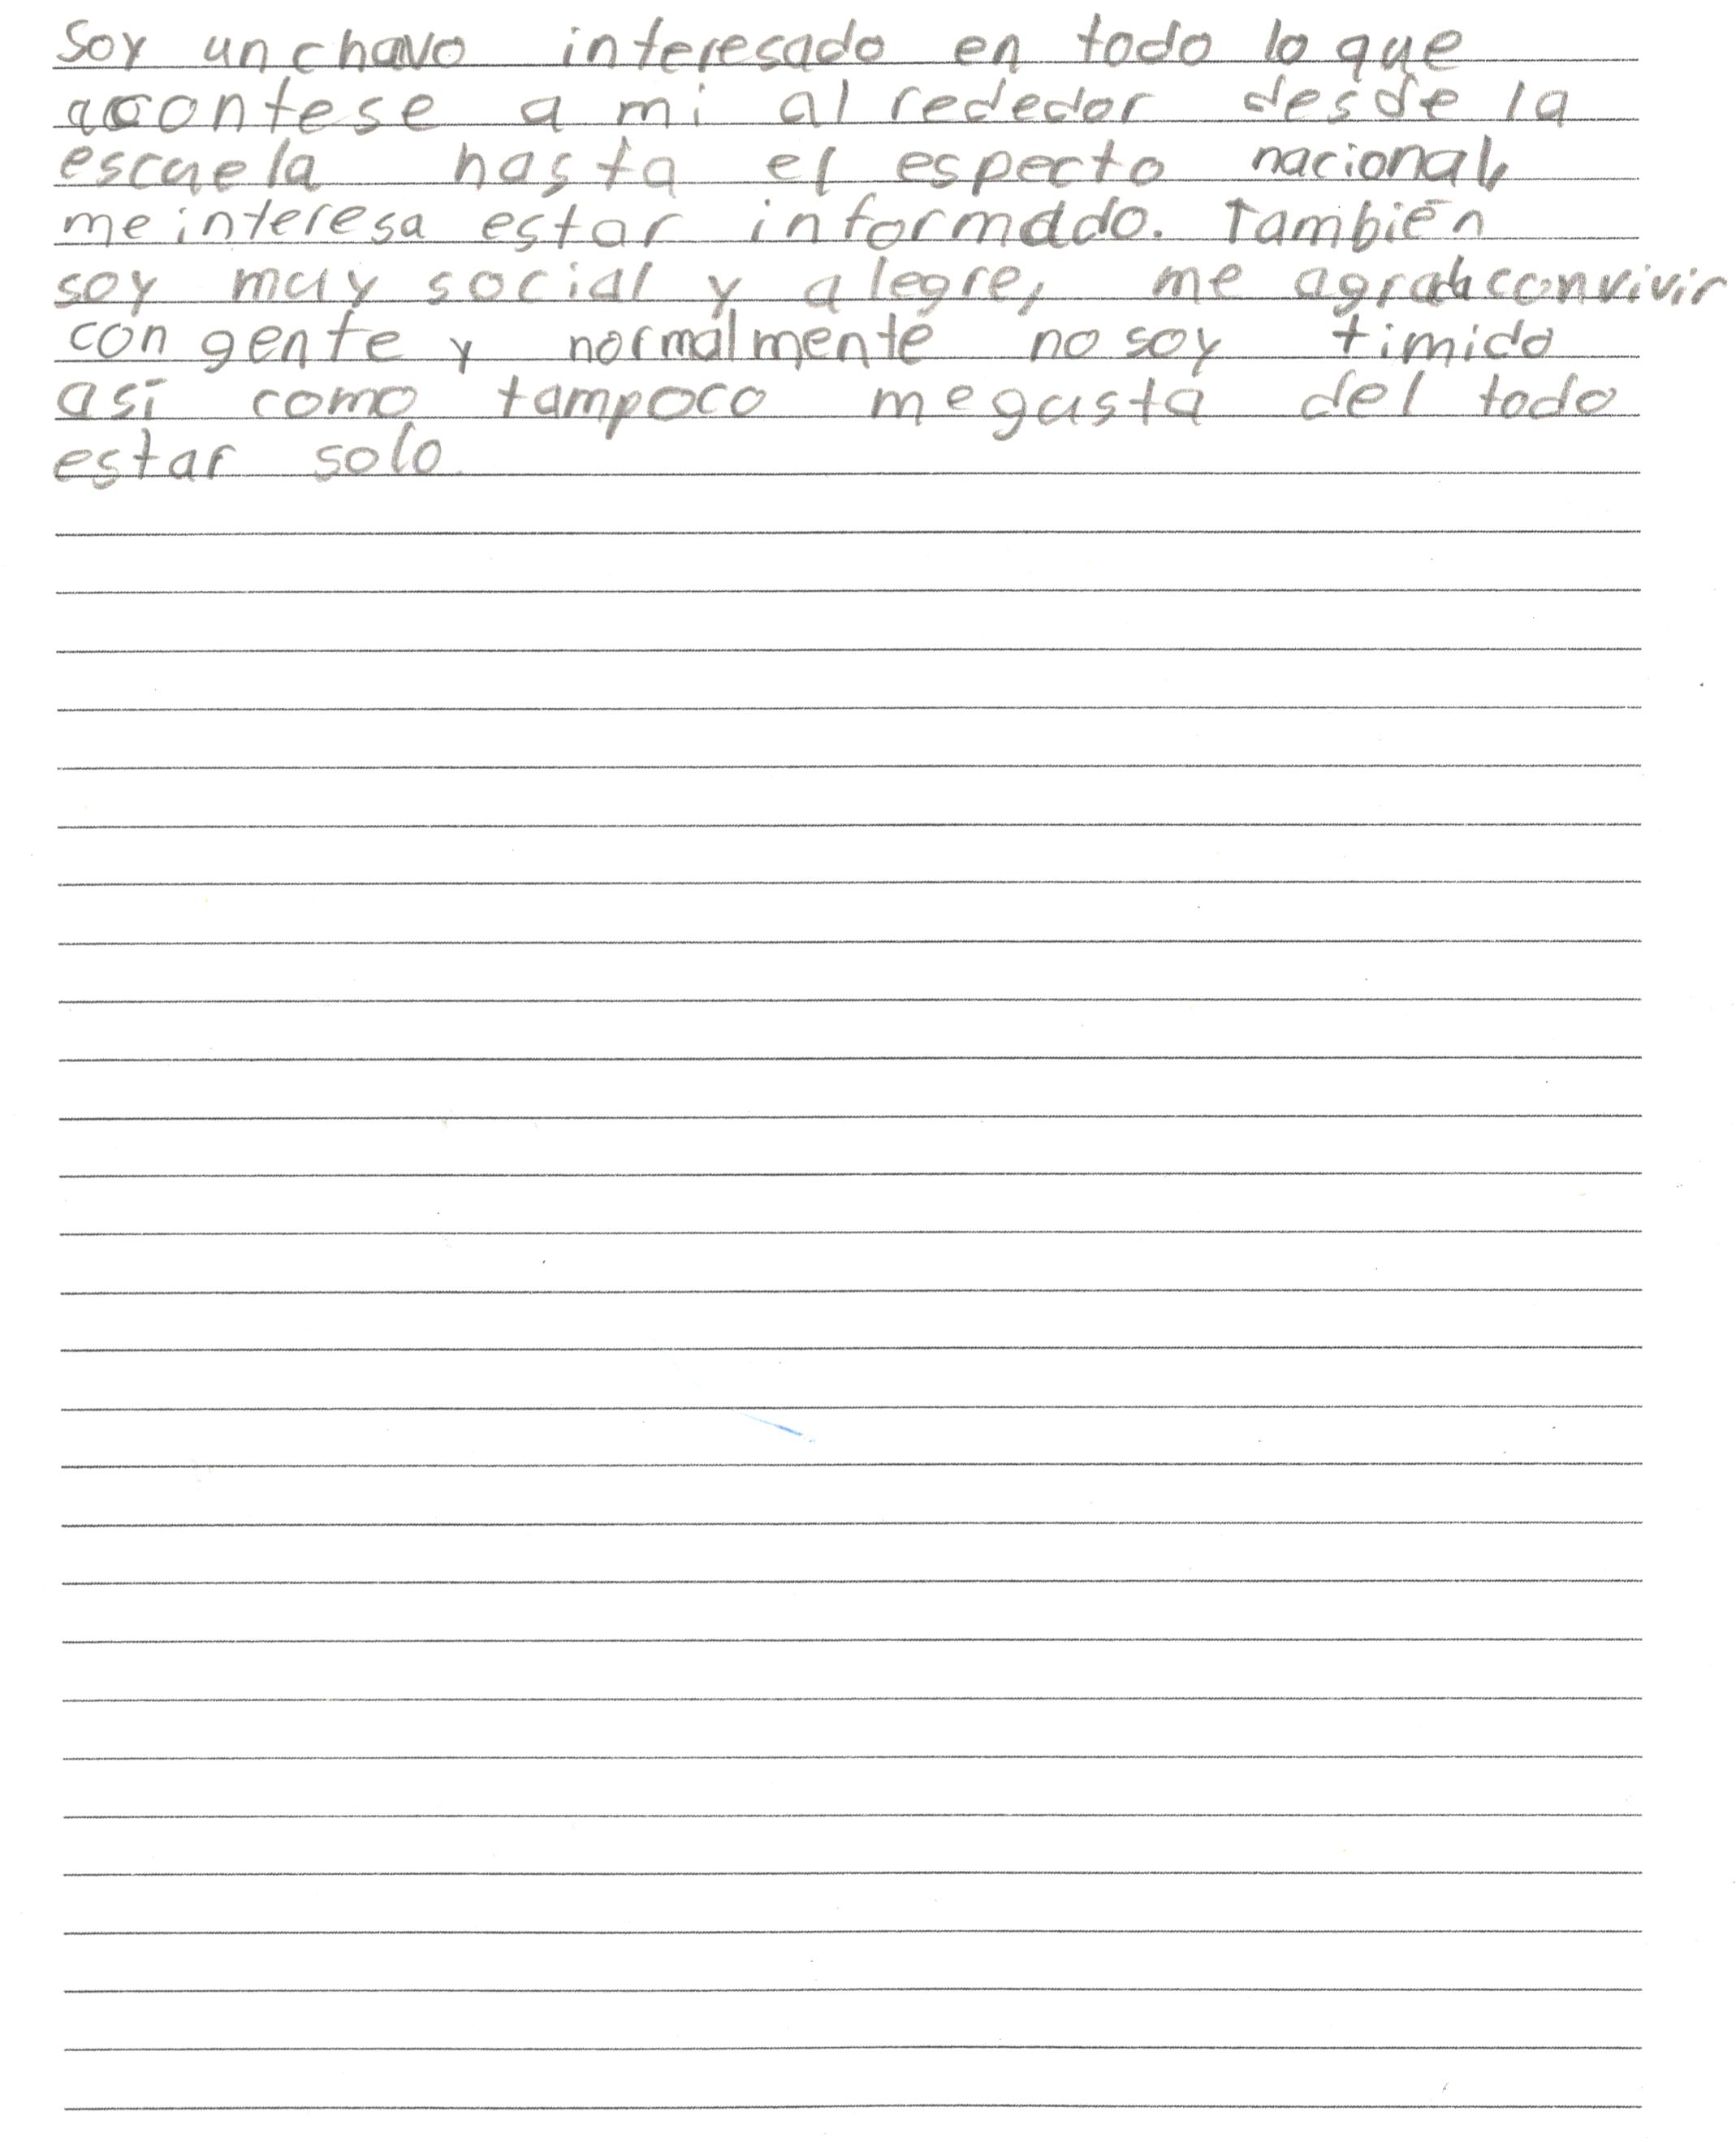 Soy un chavo interesado en todo lo que
acontese a mi al rededor desde la
escuela hasta el espacto nacional,
me interesa estar informado. También
soy muy social y alegre, me agrada convivir
con gente y normalmente no soy timido
así como tampoco me gusta del todo
estar solo.